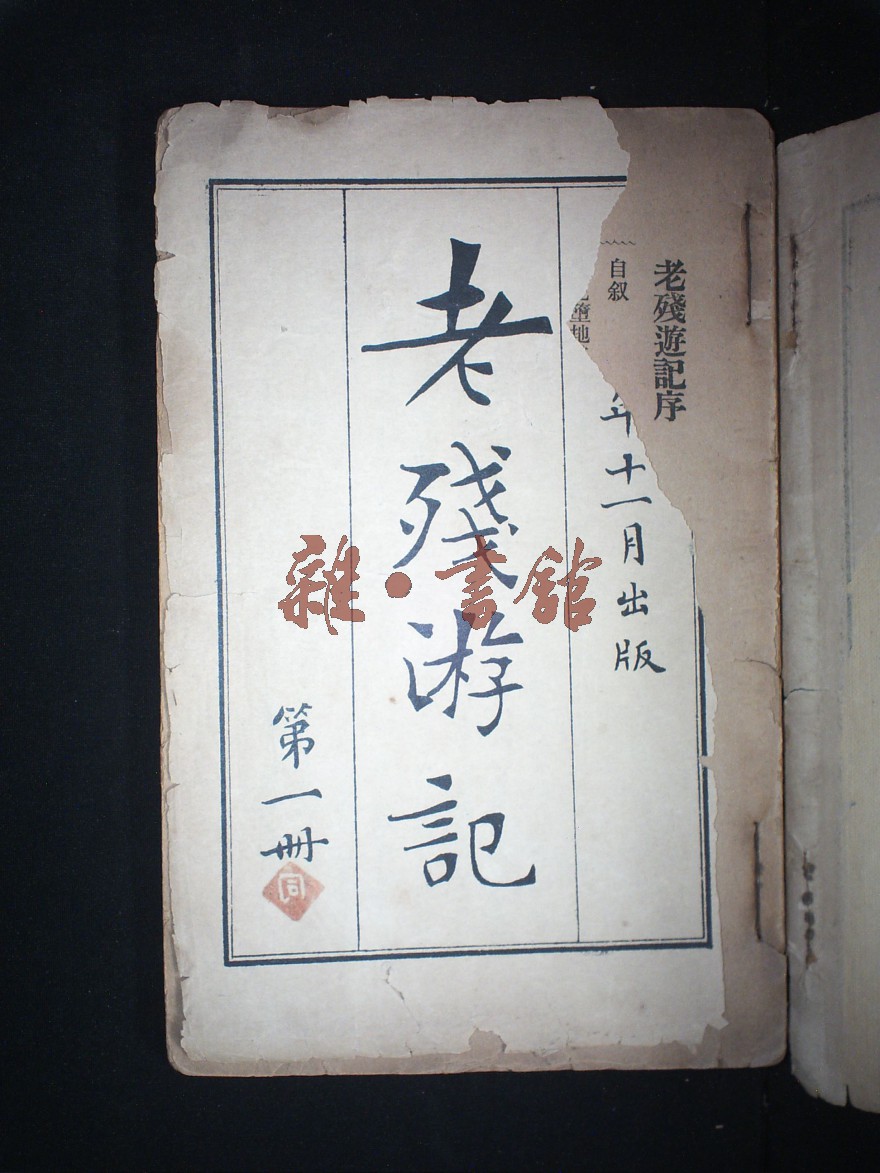 老殘遊記序
自叙
年十一月出版
老殘游記
第一冊
雜·書館